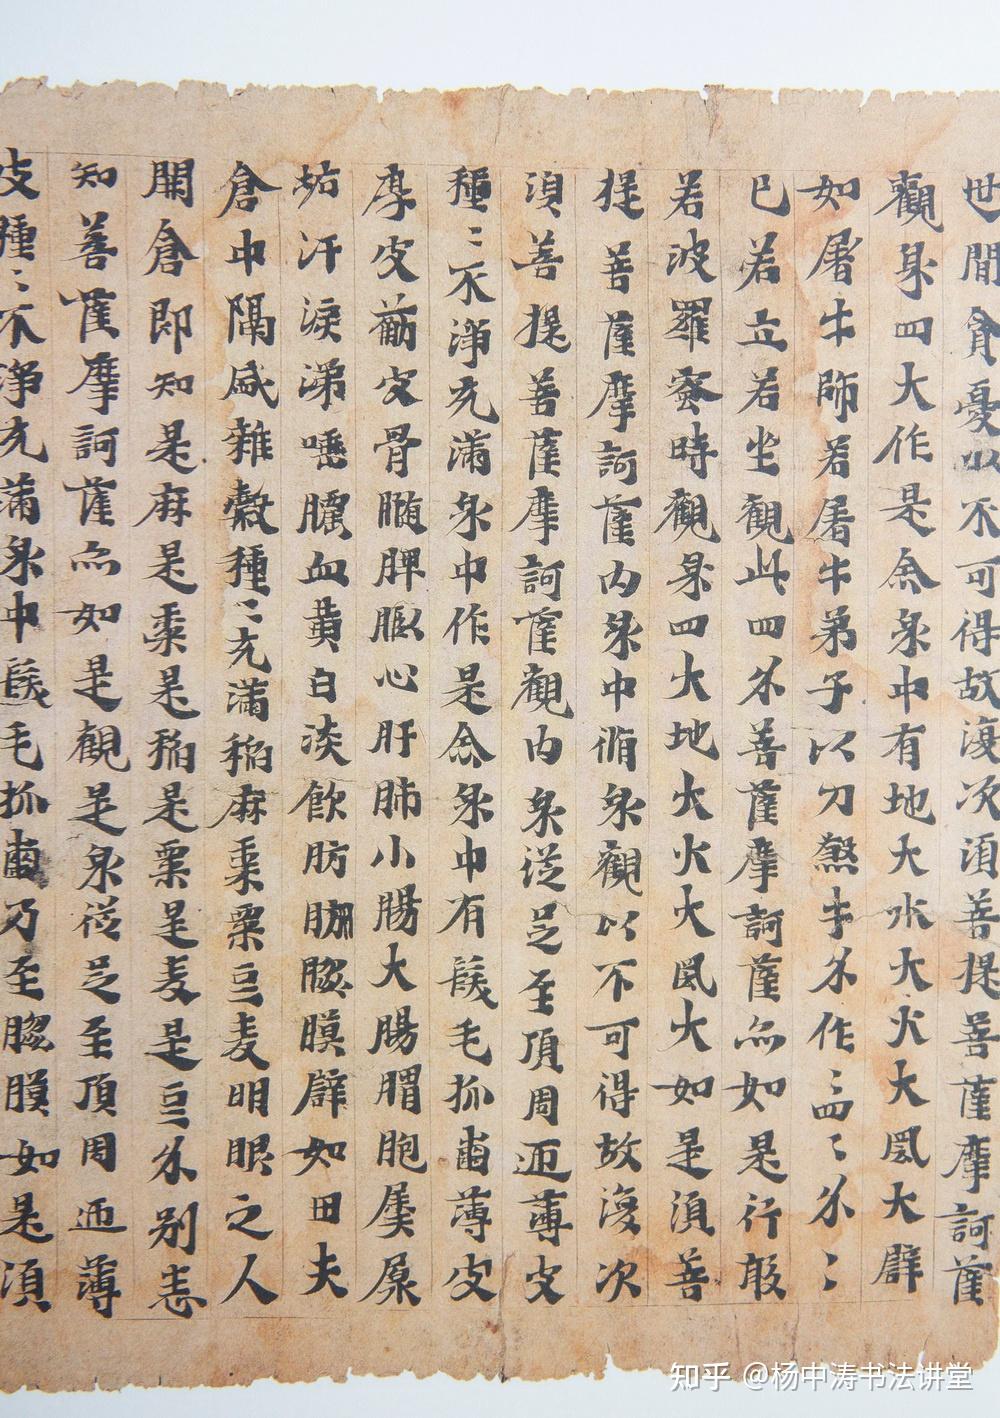 世間貪憂以不可得故復次須菩提菩薩摩訶薩
觀身四大作是念身中有地大水大火大風大辟
如屠牛師若屠牛弟子以刀煞牛分作三四三四分分
已若立若坐觀此四分菩薩摩訶薩亦如是行般
若波羅蜜時觀身四大地大火大風大如是須菩
提菩薩摩訶薩内身中循身觀以不可得故復次
須菩提菩薩摩訶薩觀内身從足至頂周迊薄皮
種〻不淨充滿身中作是念身中有髮毛抓齒薄皮
厚皮筋肉骨髓脾腎心肝肺小腸大腸胃胞屎尿
垢汗淚涕唾膿血黄白淡飲肪𦙱腦膜辟如田夫
倉中隔盛雜穀種〻充滿稻麻黍粟豆麦明眼之人
開倉即知是麻是黍是稻是粟是麦是豆分别悉
知菩薩摩訶薩亦如是觀是身從足至頂周迊薄
皮種〻不淨充滿身中髮毛抓齒乃至腦膜如是須
知乎 @杨中涛书法讲堂